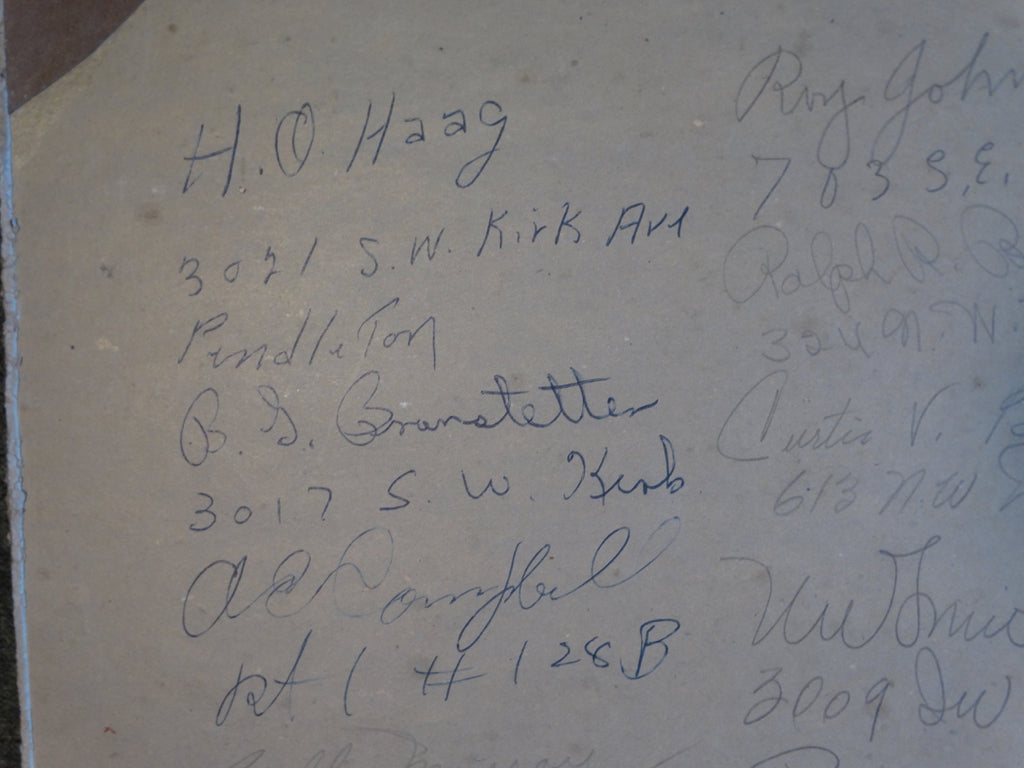 H.O. Haag
3021 S.W. Kirk Ave
Pendleton
B. G. Branstetter
3017 S. W. Kirk
A C Campbell
Rt. 1 # 128 B
Roy John
783 S.E.
Ralph R.
324 N. W.
Curtis V.
613 N.W
3009 SW